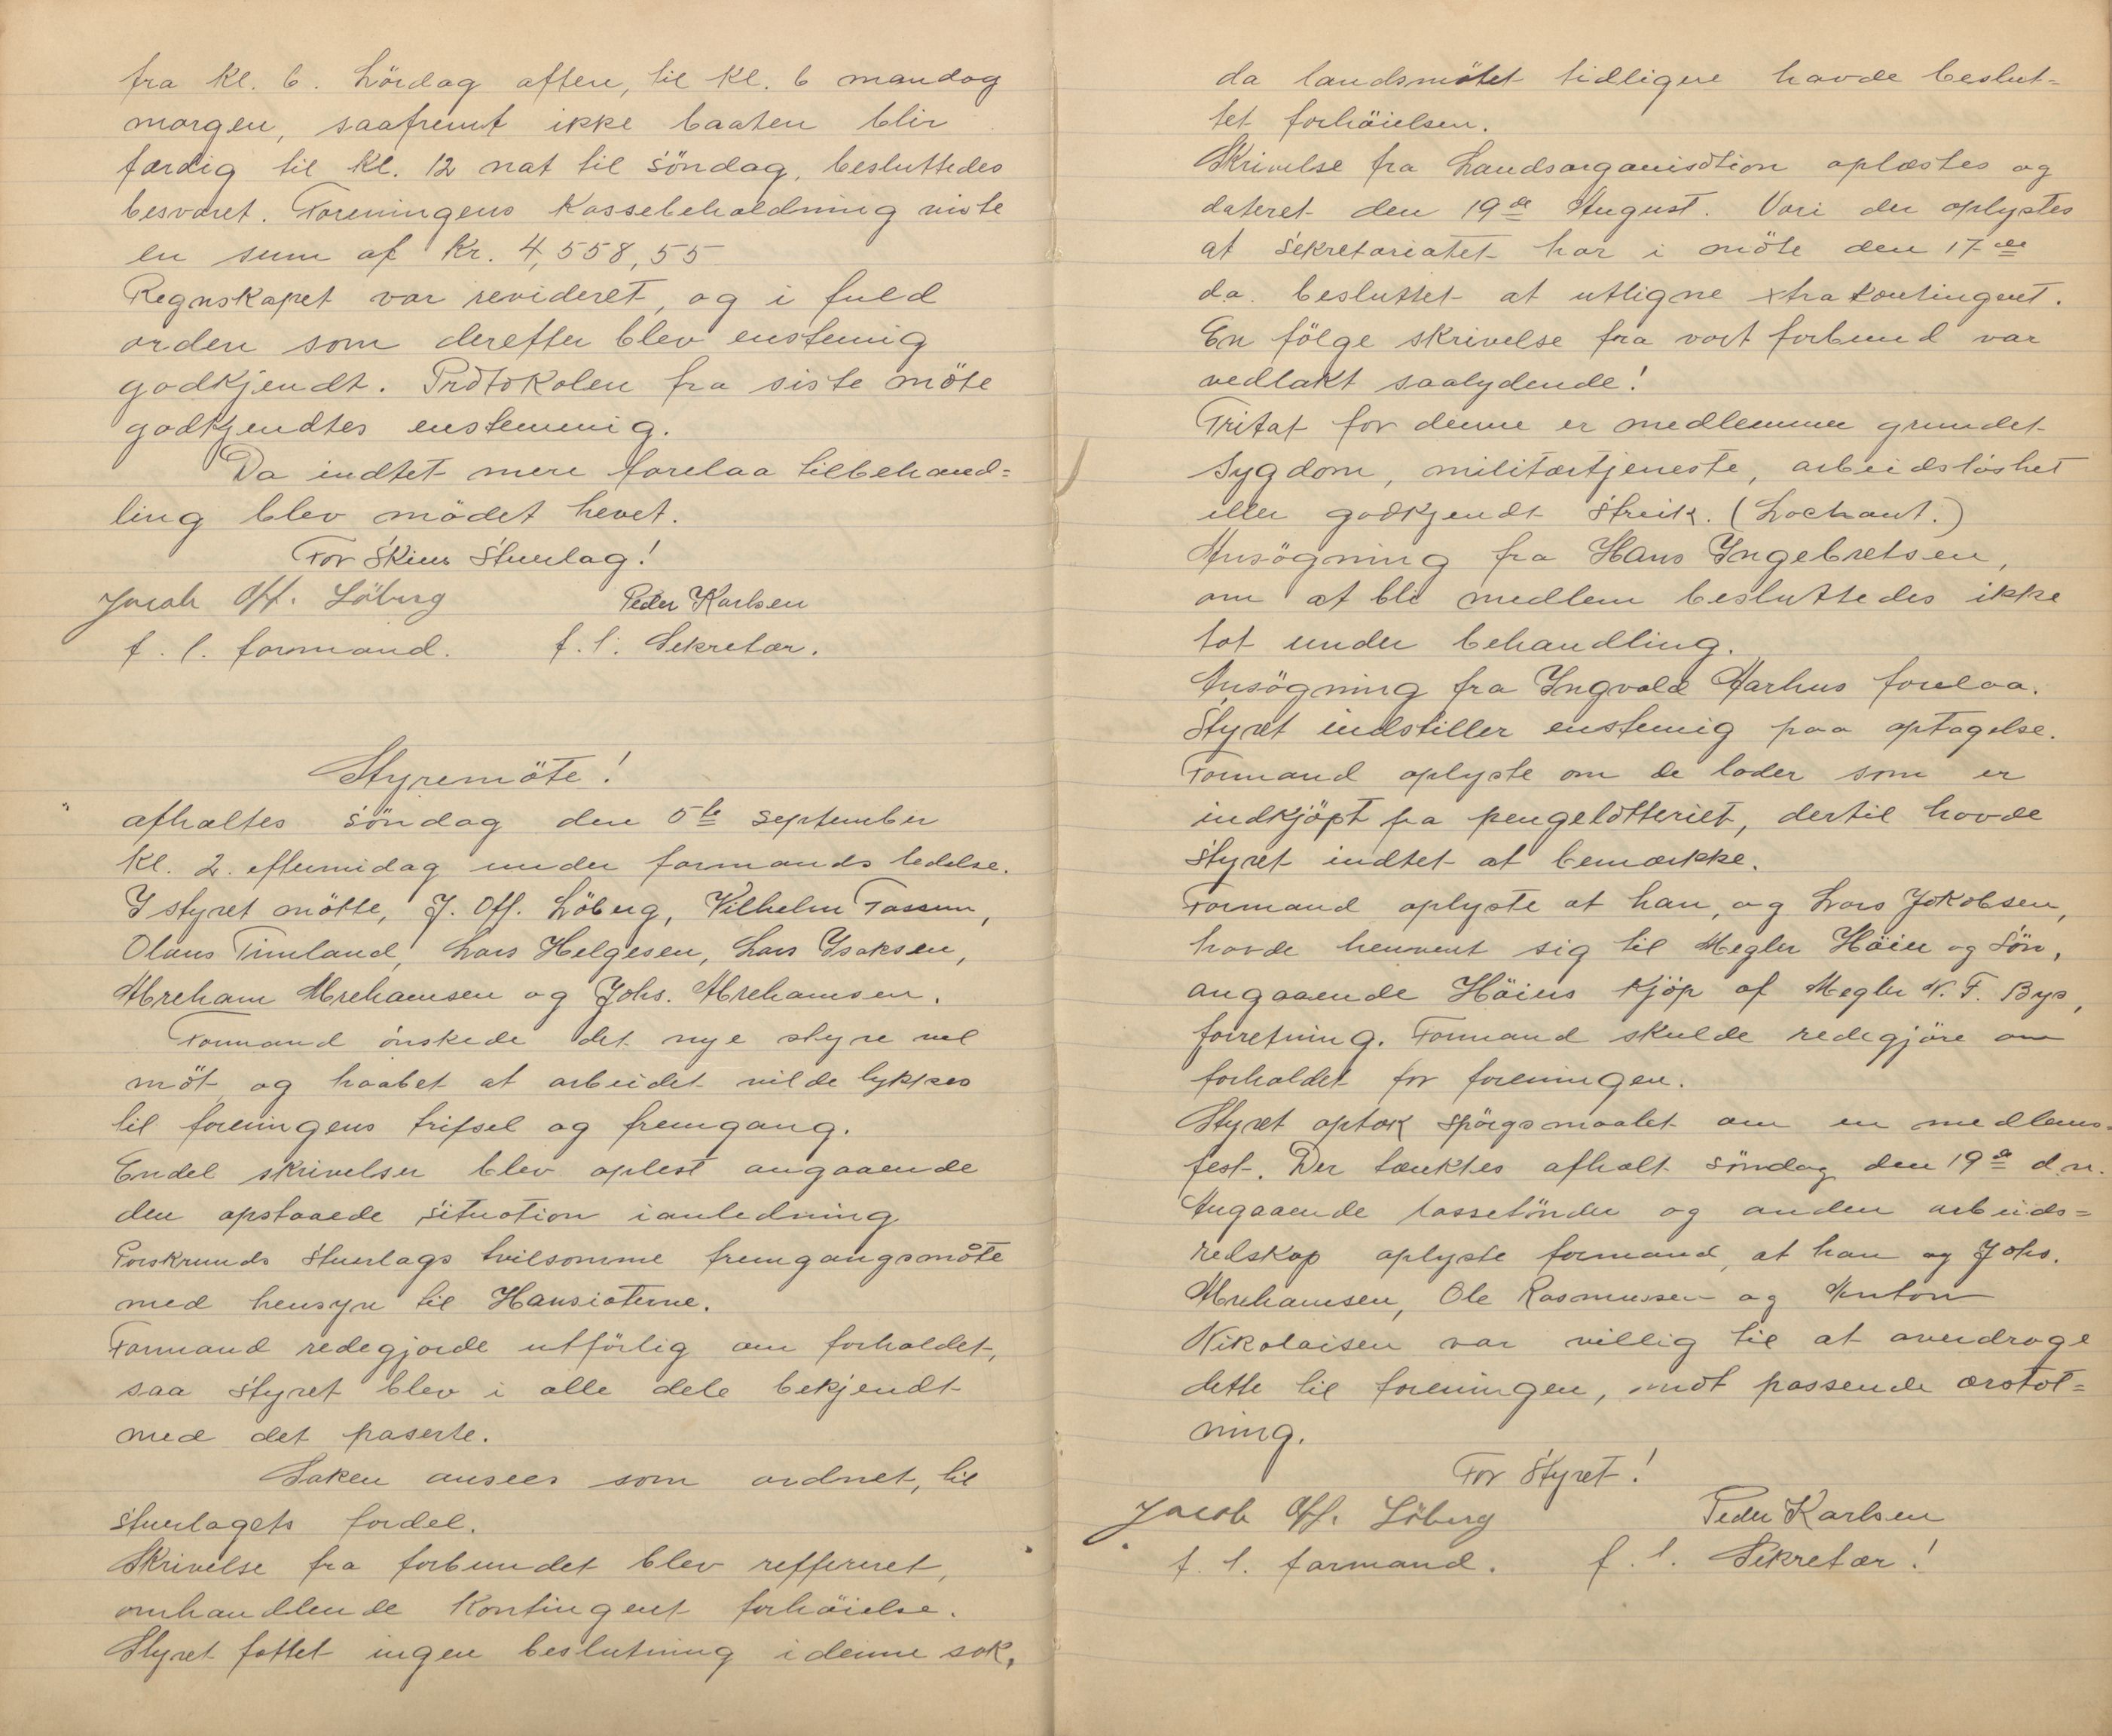 fra Kl. 6. Lördag aften, til Kl. 6 mandag
morgen, saafremt ikke baaten blir
færdig til Kl. 12 nat til söndag, besluttedes
besvaret. Foreningens Kassebeholdning viste
en sum af Kr. 4,558,55
Regnskapet var revideret, og i fuld
orden som derefter blev enstemig
godkjendt. Protokolen fra siste möte
godkjendtes enstemmig.
Da indtet mere forelaa tilbehand=
ling blev mödet hevet.
For Skiens Stuerlag!
Jacob Off. Löberg Peder Karlsen
f. t. formand. f. t. Sekretær.
Styremöte!
afholtes söndag den 5te september
Kl. 2. eftermidag under formands ledelse.
I styret mötte, J. Off. Löberg, Vilhelm Fossum,
Olaus Timland, Lars Helgesen, Lars Isaksen,
Abreham Abrehamsen og Johs. Abrehamsen.
Formand önskede det nye styre vel
möt, og haabet at arbeidet vilde lykkes
til foreningens trifsel og fremgang.
Endel skrivelser blev oplest angaaende
den opstaaede situation ianledning
Porskrunds Stuerlags tvilsomme fremgangsmåte
med hensyn til Hansiaterne.
Formand redegjorde utförlig om forholdet,
saa Styret blev i alle dele bekjendt
med det paserte.
Saken ansees som ordnet, til
stuerlagets fordel.
Skrivelse fra forbundet blev refereret,
omhandlende Kontingent forhöielse.
Styret fattet ingen beslutning i denne sak,
da landsmötet tidligere havde beslut=
tet forhöielsen.
Skrivelse fra Landsorganisation oplæstes og
dateret den 19de August. Vori der oplystes
at Sekretariatet har i möte den 17de
da. besluttet at utligne xtra Kontingent.
En fölge skrivelse fra vort forbund var
vedlakt saalydende!
Fritat for denne er medlemmer grundet
sygdom, militærtjeneste, arbeidslöshet
eller godkjendt Streik. (Lockaut.)
Ansögning fra Hans Ingebretsen,
om at bli medlem besluttedes ikke
tat under behandling.
Ansögning fra Ingvald Aarhus forelaa.
Styret indstiller enstemig paa optagelse.
Formand oplyste om de loder som er
indkjöpt fra pengelotteriet, dertil havde
Styret indtet at bemærke.
Formand oplyste at han, og Lars Jakobsen,
havde henvent sig til Megler Höier og Sön,
angaaende Höiers Kjöp af Megler N. F. Bys,
forretning. Formand skulde redegjöre om
forholdet for foreningen.
Styret optok spörgsmaalet om en medlems.
fest. Der tænktes afholt söndag den 19de d.m.
Angaaende lossetönder og anden arbeids=
redskap oplyste formand, at han og Johs.
Abrehamsen, Ole Rasmussen og Anton
Nikolaisen var villig til at overdrage
dette til foreningen, mot passende erstat=
ning.
For Styret!
Jacob Off. Löberg Peder Karlsen
f. t. formand. f. t. Sekretær!